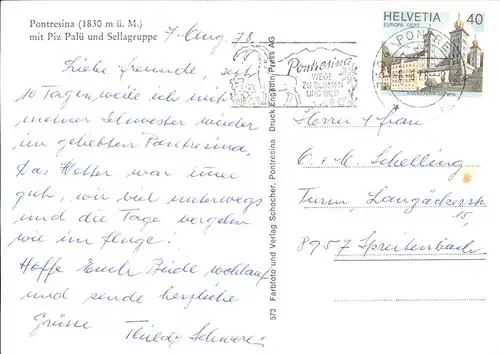 Pontresina (1830 m ü. M.)
mit Piz Palü und Sellagruppe
7. Aug. 78.
Liebe Freunde, seit
10 Tagen weile ich mit
meiner Schwester wieder
im geliebten Pontresina,
Das Wetter war immer
gut, wir viel unterwegs
und die Tage vergehn
wie im Fluge!
Hoffe Euch Beide wohlauf
und sende herzliche
Grüsse
573 Farbfoto und Verlag Schocher, Pontresina Druck Engadin Press AG
Pontresina
WEGE
ZU BLUMEN
UND WILD
HELVETIA 40
EUROPA CEPT
PONTRESINA
Herrn & Frau
O. & M. Schelling
Turm, Langäckerstr.
15,
8957 Spreitenbach